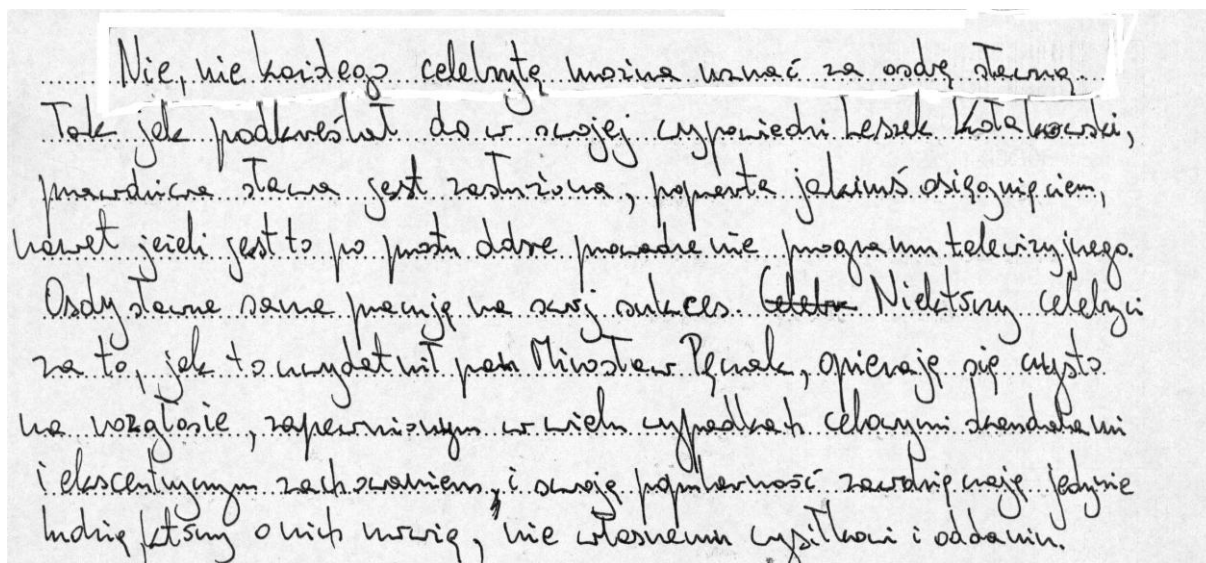 Nie, nie każdego celebrytę można uznać za osobę sławną.
Tak jak podkreślał to w swojej wypowiedzi Leszek Kołakowski,
prawdziwa sława jest zasłużona, poparta jakimś osiągnięciem,
nawet jeżeli jest to po prostu dobre prowadzenie programu telewizyjnego.
Osoby sławne same pracują na swój sukces. Celebr Niektórzy celebryci
za to, jak to uwydatnił pan Mirosław Pęczak, opierają się czysto
na rozgłosie, zapewnionym w wielu wypadkach celowymi skandalami
i ekscentrycznym zachowaniem, i swoją popularność zawdzięczają jedynie
ludzią którzy o nich mówią, nie własnemu wysiłkowi i oddaniu.